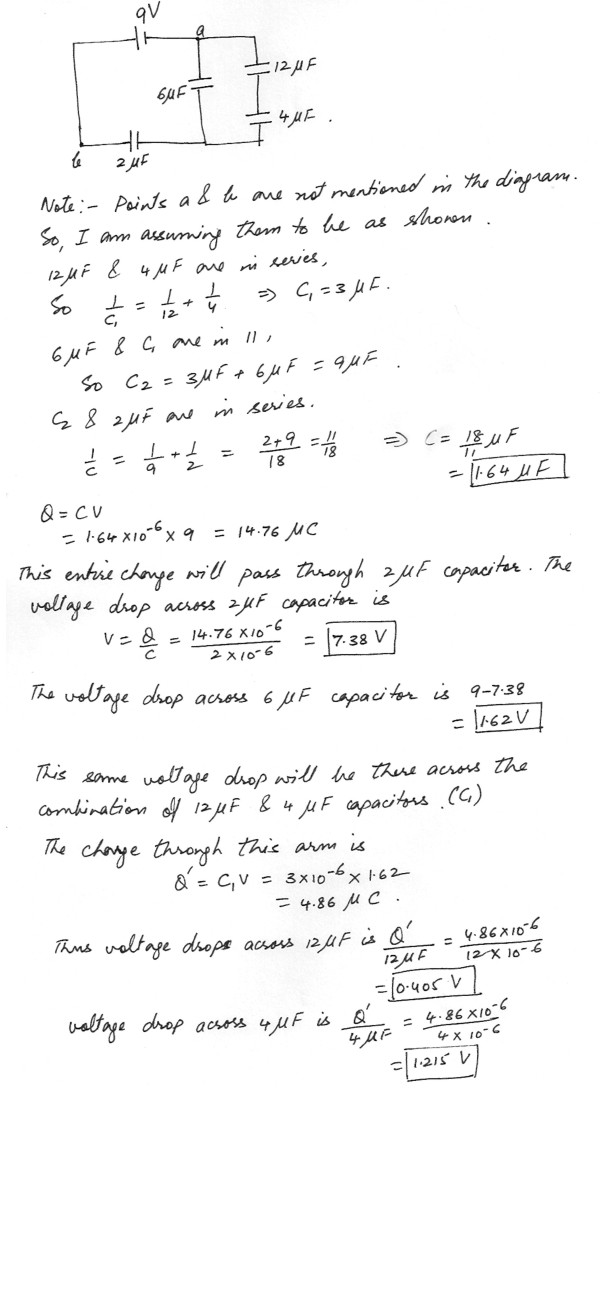 9V
a
12 µF
6µF
4 µF.
b
2 µF
Note:- Points a & b are not mentioned in the diagram.
So, I am assuming them to be as shown.
12µF & 4 µF are in series,
So 1/C₁ = 1/12 + 1/4 ⇒ C₁ = 3 µF.
6 µF & C₁ are in 11,
So C₂ = 3µF + 6 µF = 9µF.
C₂ & 2µF are in series.
1/C = 1/9 + 1/2 = 2+9/18 = 11/18 ⇒ C = 18/11 µF
= 1.64 µF
Q = CV
= 1.64 x10⁻⁶ x 9 = 14.76 µC
This entire charge will pass through 2 µF capacitor. The
voltage drop across 2µF capacitor is
V = Q/C = 14.76 x10⁻⁶/2 x10⁻⁶ = 7.38 V
The voltage drop across 6 µF capacitor is 9-7.38
= 1.62 V
This same voltage drop will be there across the
combination of 12µF & 4 µF capacitors. (C₁)
The charge through this arm is
Q' = C₁V = 3x10⁻⁶ x 1.62
= 4.86 µC.
Thus voltage drops across 12µF is Q'/12µF = 4.86x10⁻⁶/12 x 10⁻⁶
= 0.405 V
voltage drop across 4µF is Q'/4 µF = 4.86 x10⁻⁶/4 x 10⁻⁶
= 1.215 V